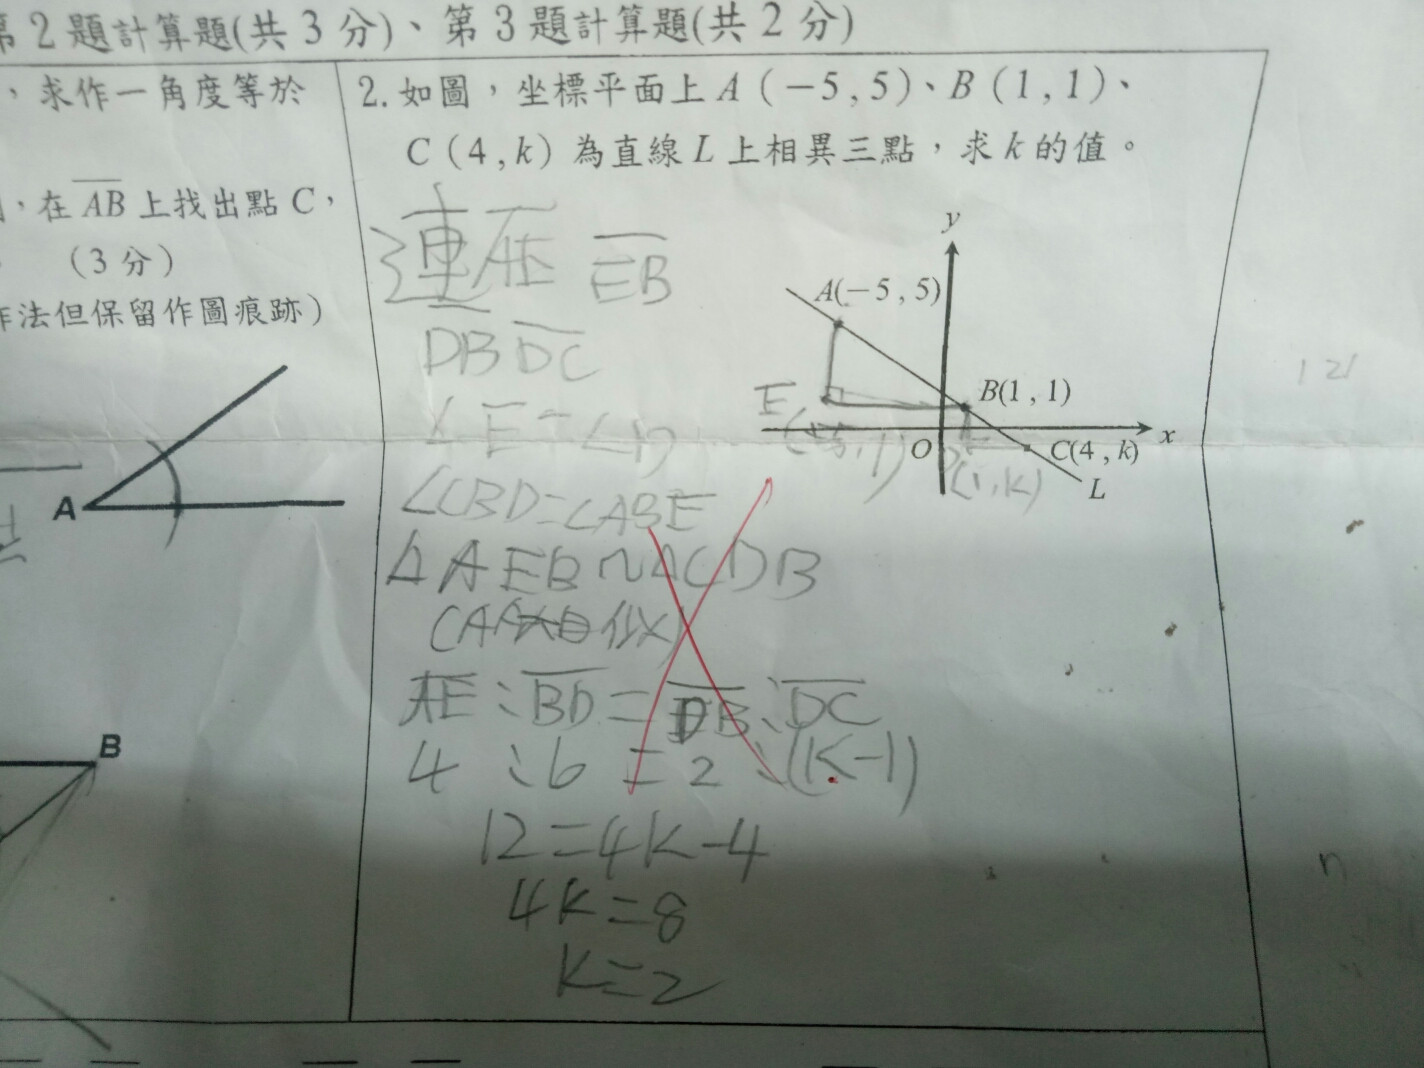 第2題計算題(共3分)、第3題計算題(共2分)
，求作一角度等於
，在AB上找出點C，
(3分)
作法但保留作圖痕跡)
A
B
2. 如圖，坐標平面上A(－5,5)、B(1,1)、
C(4,k)為直線L上相異三點，求k的值。
連AE EB
DB DC
∠E=∠D
∠CBD=∠ABE
△AEB~△CDB
(AA相似)
AE:BD=DB:DC
4:6=2:(k-1)
12=4k-4
4k=8
k=2
y
A(－5,5)
B(1,1)
E
(-5,1)
O
x
C(4,k)
D
(1,k)
L